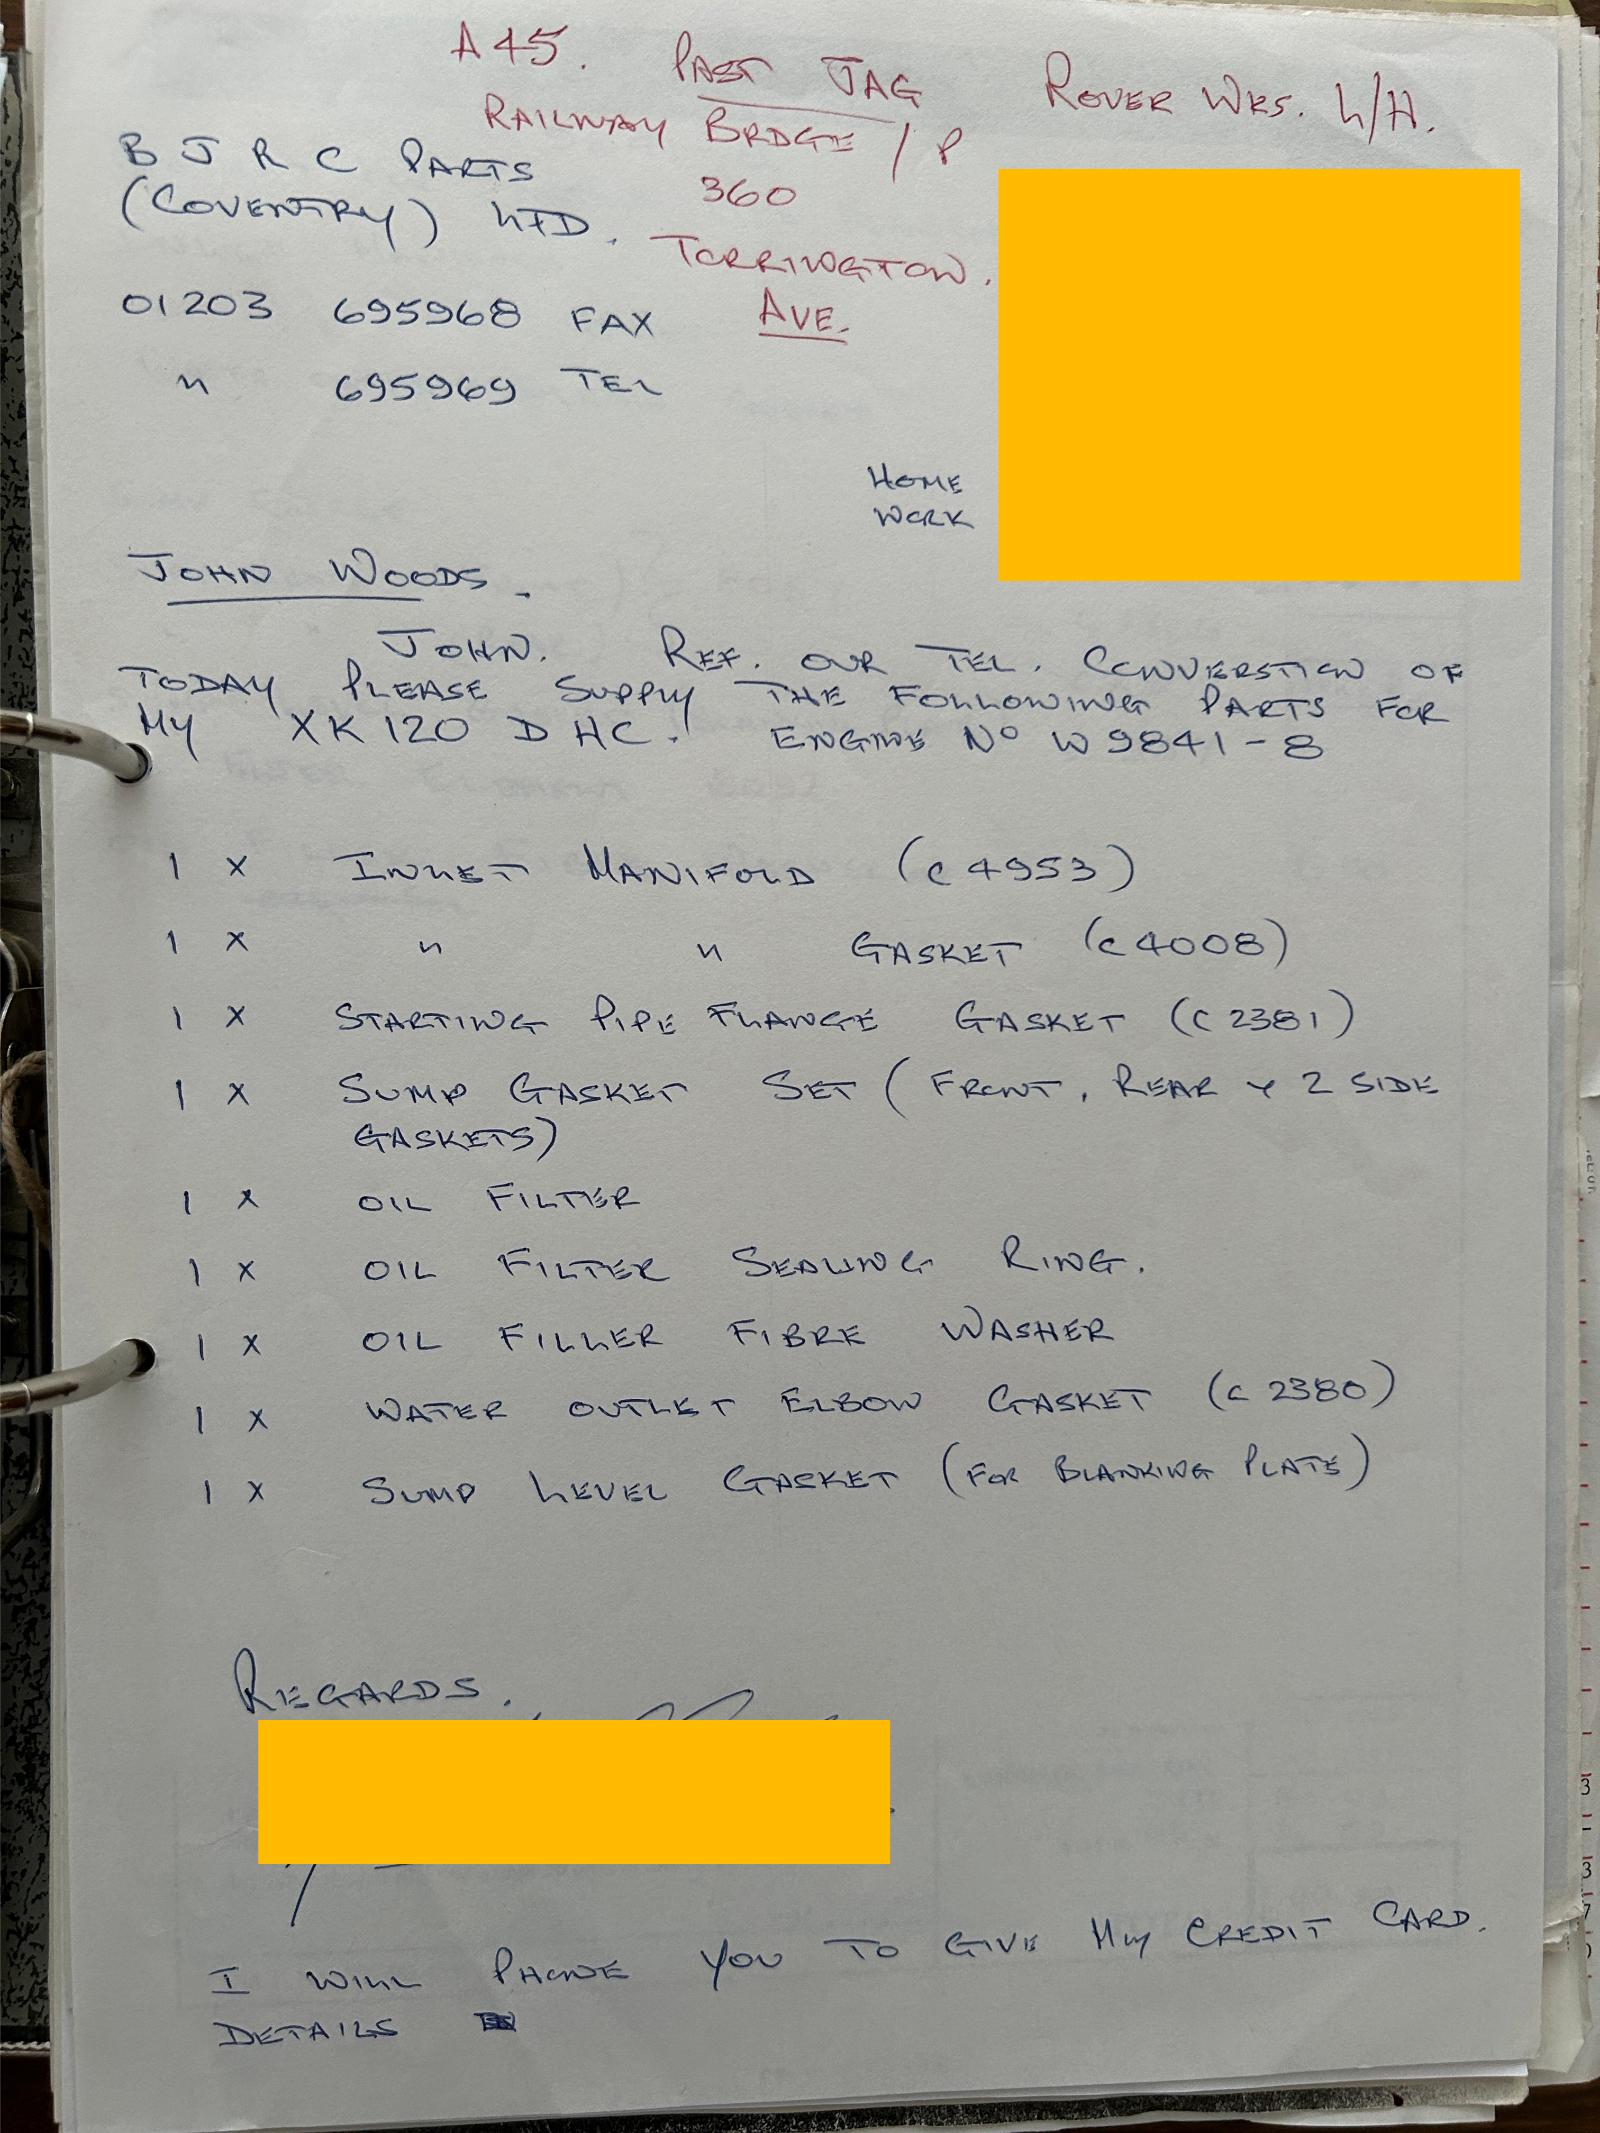 A45. PAST JAG ROVER WKS. L/H.
RAILWAY BRDGE / P
360
TORRINGTON.
AVE.
B J R C PARTS
(COVENTRY) LTD.
01203 695968 FAX
" 695969 TEL
HOME
WORK
JOHN WOODS.
JOHN. REF. OUR TEL. CONVERSTION OF
TODAY PLEASE SUPPLY THE FOLLOWING PARTS FOR
MY XK120 DHC. ENGINE Nº W9841-8
1 X INLET MANIFOLD (C4953)
1 X " " GASKET (C4008)
1 X STARTING PIPE FLANGE GASKET (C2381)
1 X SUMP GASKET SET (FRONT, REAR + 2 SIDE
GASKETS)
1 X OIL FILTER
1 X OIL FILTER SEALING RING.
1 X OIL FILLER FIBRE WASHER
1 X WATER OUTLET ELBOW GASKET (C2380)
1 X SUMP LEVEL GASKET (FOR BLANKING PLATE)
REGARDS.
I WILL PHONE YOU TO GIVE MY CREDIT CARD.
DETAILS